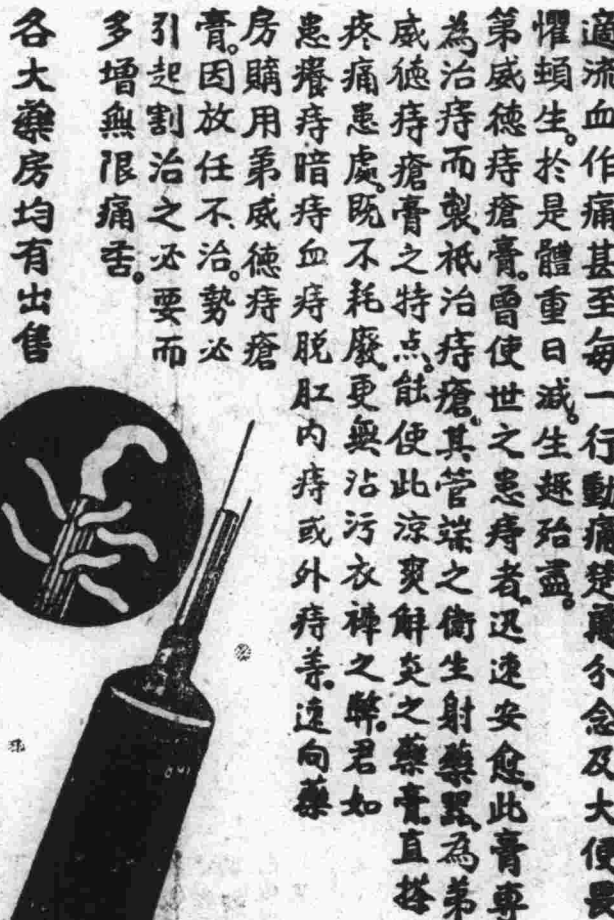 適流血作痛甚至每一行動痛楚萬分念及大便畏
懼頓生。於是體重日減。生趣殆盡。
第威德痔瘡膏。曾使世之患痔者。迅速安愈。此膏專
為治痔而製。祇治痔瘡。其管端之衛生射藥器。為第
威德痔瘡膏之特点。能使此涼爽解炎之藥膏。直搽
疼痛患處。既不耗廢。更無沾污衣褲之弊。君如
患癢痔暗痔血痔脱肛内痔或外痔等。速向藥
房購用第威德痔瘡
膏。因放任不治。勢必
引起割治之必要而
多增無限痛苦。
各大藥房均有出售